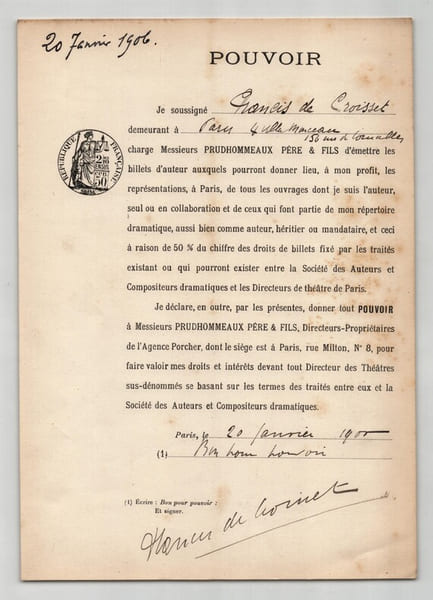 20 Janvier 1906.
POUVOIR
Je soussigné Francis de Croisset
demeurant à Paris 4 villa Marceau
156 rue de Courcelles
charge Messieurs PRUDHOMMEAUX PÈRE & FILS d'émettre les
billets d'auteur auxquels pourront donner lieu, à mon profit, les
représentations, à Paris, de tous les ouvrages dont je suis l'auteur,
seul ou en collaboration et de ceux qui font partie de mon répertoire
dramatique, aussi bien comme auteur, héritier ou mandataire, et ceci
à raison de 50 % du chiffre des droits de billets fixé par les traités
existant ou qui pourront exister entre la Société des Auteurs et
Compositeurs dramatiques et les Directeurs de théâtre de Paris.
Je déclare, en outre, par les présentes, donner tout POUVOIR
à Messieurs PRUDHOMMEAUX PÈRE & FILS, Directeurs-Propriétaires
de l'Agence Porcher, dont le siège est à Paris, rue Milton, N° 8, pour
faire valoir mes droits et intérêts devant tout Directeur des Théâtres
sus-dénommés se basant sur les termes des traités entre eux et la
Société des Auteurs et Compositeurs dramatiques.
Paris, le 20 janvier
(1) Bon pour pouvoir
(1) Écrire : Bon pour pouvoir :
Et signer.
Francis de Croisset
RÉPUBLIQUE FRANÇAISE
50